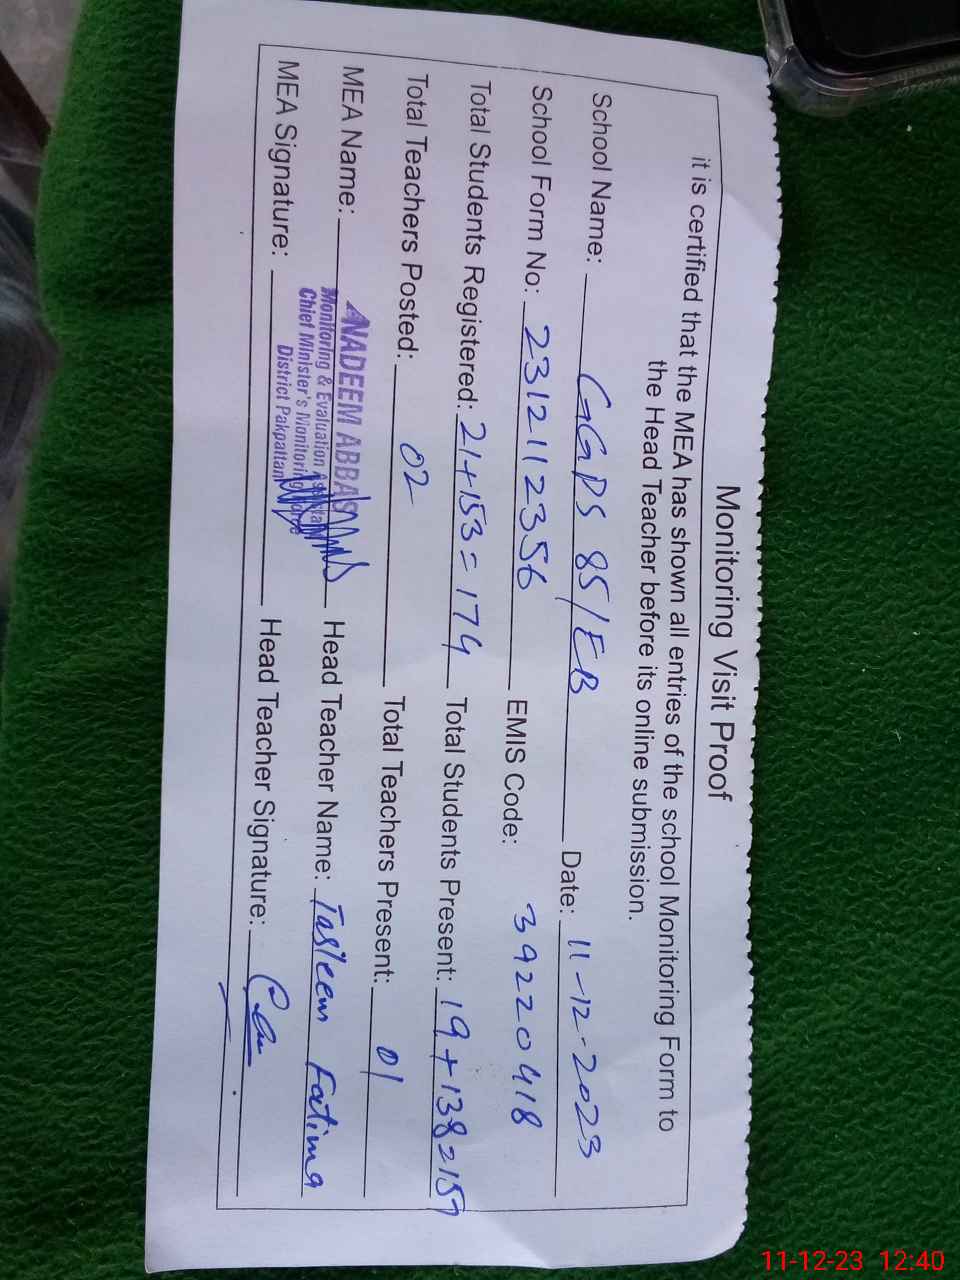 Monitoring Visit Proof
it is certified that the MEA has shown all entries of the school Monitoring Form to
the Head Teacher before its online submission.
School Name: GGPS 85/EB Date: 11-12-2023
School Form No: 231211 2356 EMIS Code: 39220418
Total Students Registered: 21+153=174 Total Students Present: 19+138=157
Total Teachers Posted: 02 Total Teachers Present: 01
MEA Name: NADEEM ABBAS Head Teacher Name: Tasleem Fatima
Monitoring & Evaluation
Chief Minister's Monitoring Force
District Pakpattan
MEA Signature: Head Teacher Signature:
11-12-23 12:40